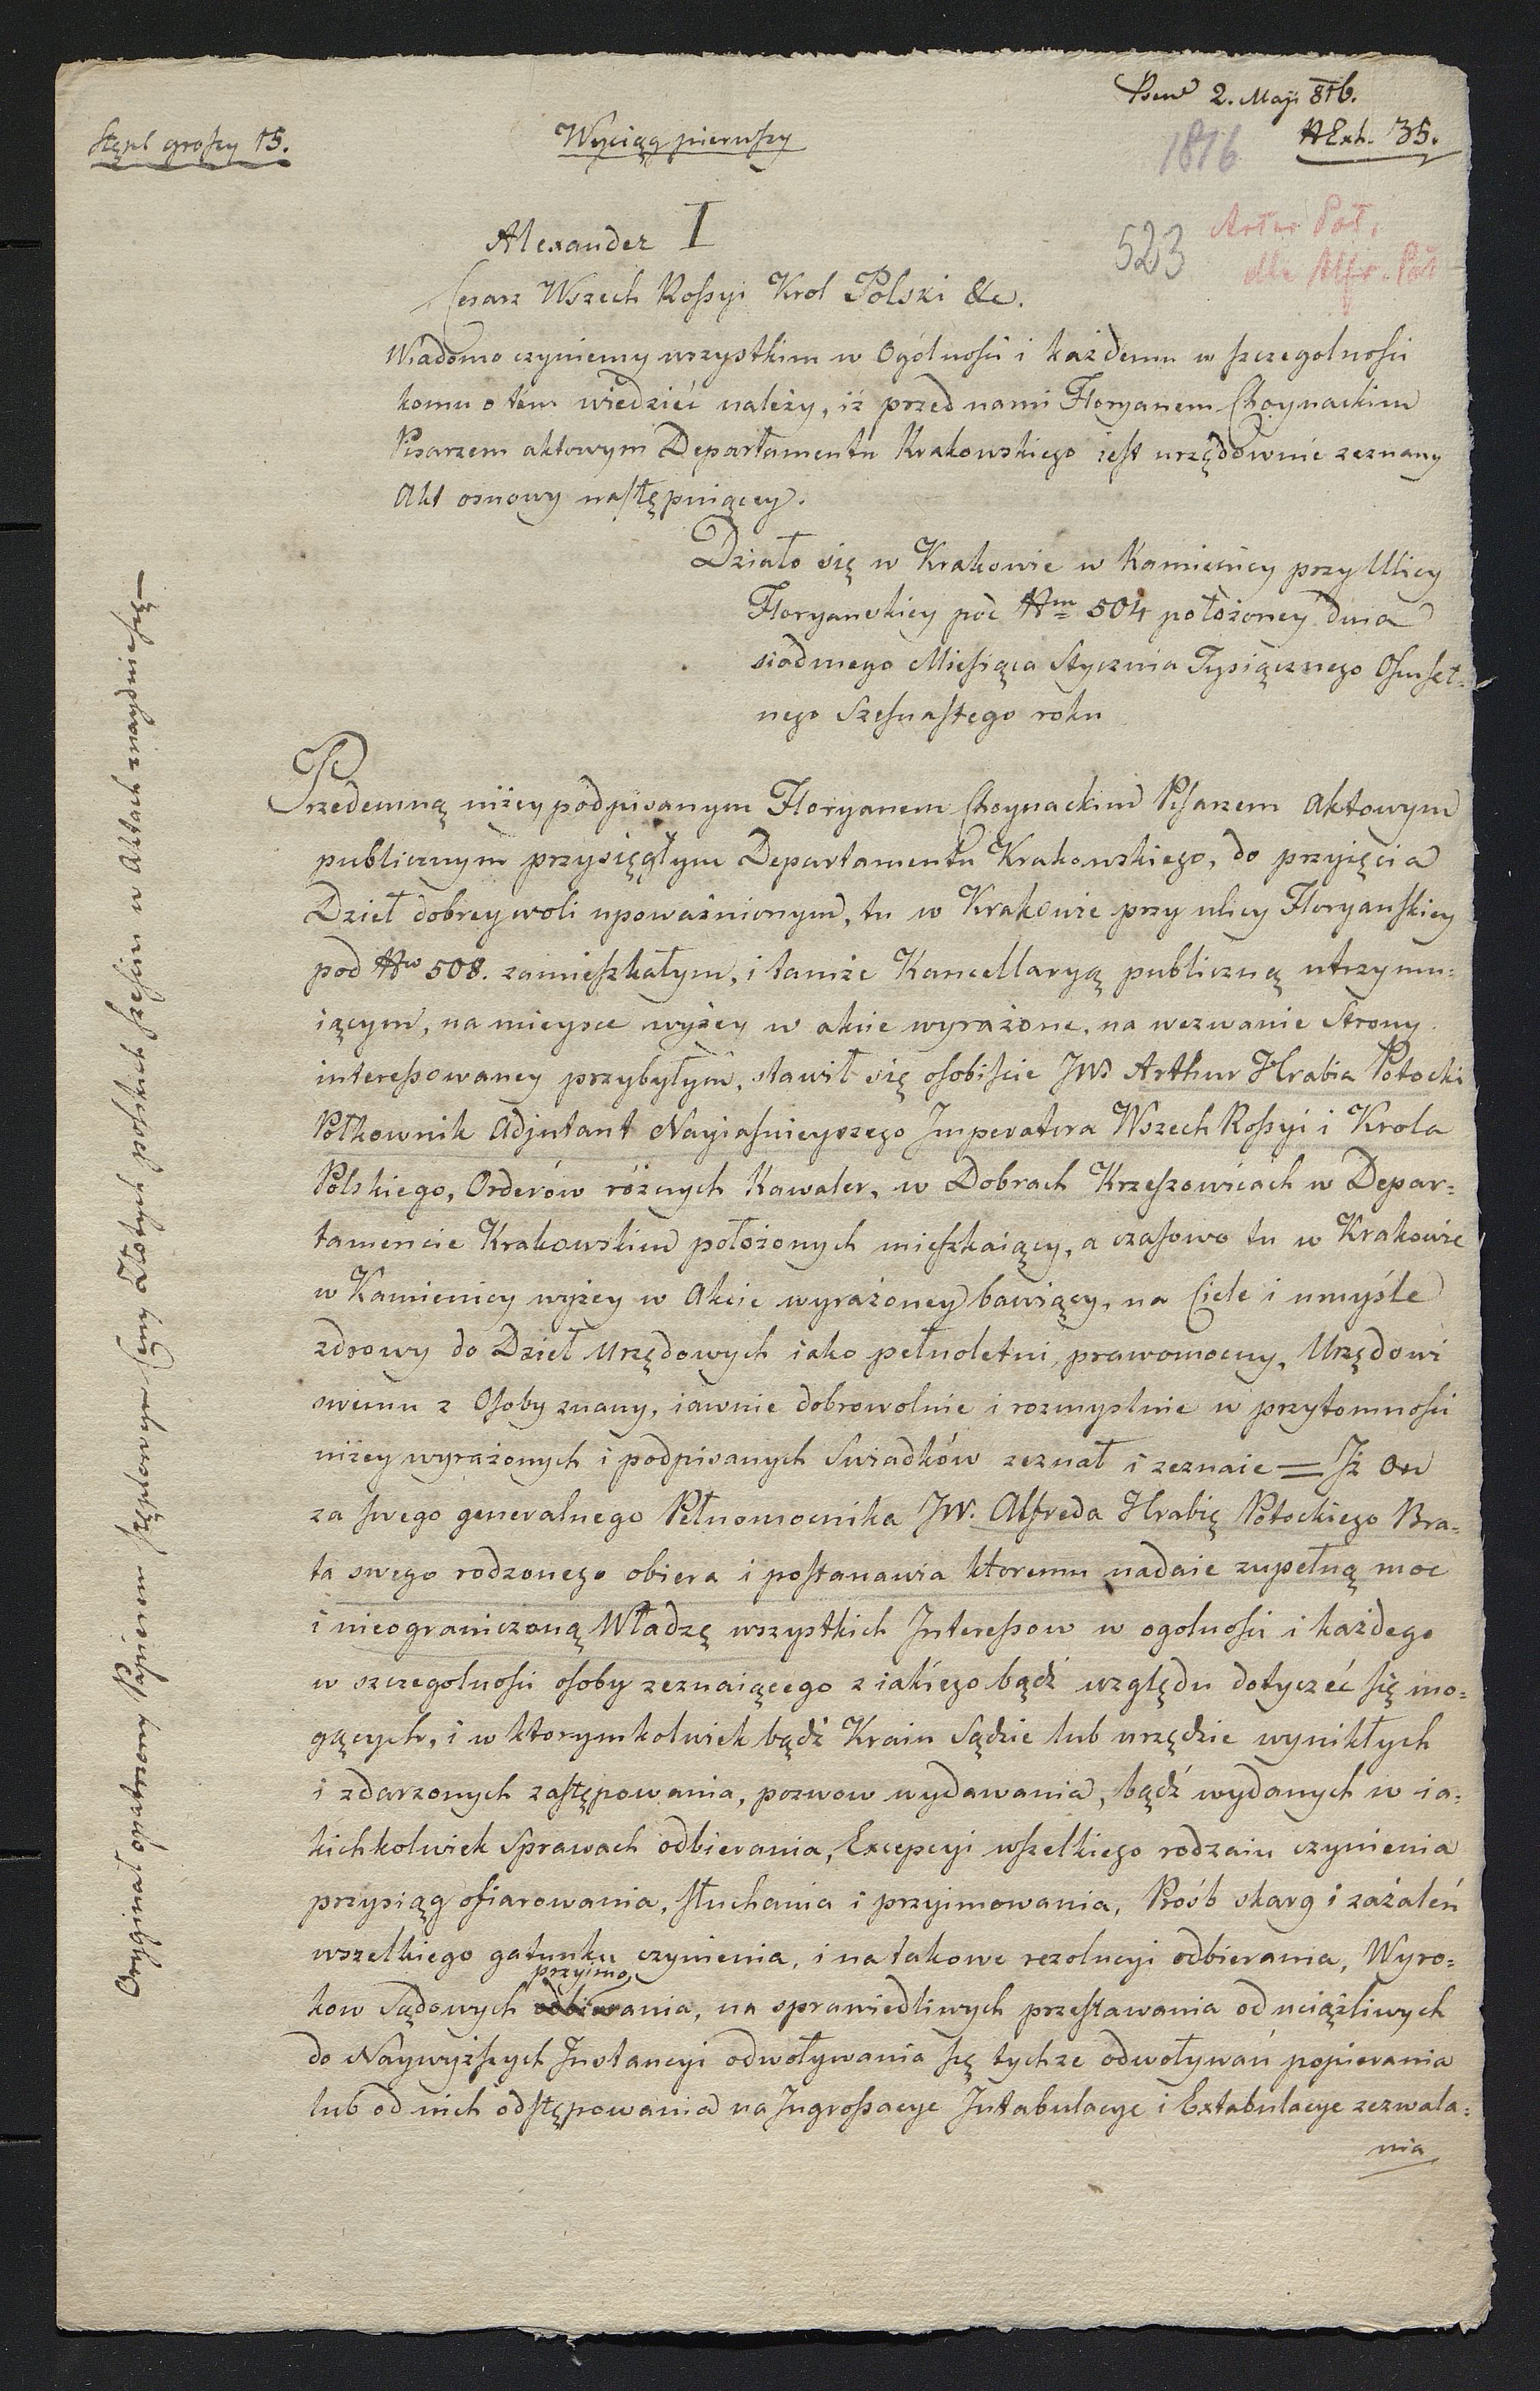 2. Maji 816.
Stępl groszy 15.
Wyciąg pierwszy
1816
NExh. 35.
Alexander I
523
Artur Pot.
dla Alfr. Pot
Cesarz Wszech Rossyi Krol Polski &c.
Wiadomo czyniemy wszystkim w Ogólnosci i każdemu w szczegolnosci
komu o tem wiedzieć należy, iż przed nami Floryanem Choynackim
Pisarzem aktowym Departamentu Krakowskiego iest urzędownie zeznany
Akt osnowy następuiącey.
Działo się w Krakowie w Kamienicy przy Ulicy
Floryanskiey pod Nm 504 położoney dnia
siodmego Miesiąca Stycznia Tysiącznego Osmset=
nego Szesnastego roku
Przedemną niżey podpisanym Floryanem Choynackim Pisarzem Aktowym
publicznym przysięgłym Departamentu Krakowskiego, do przyięcia
Dzieł dobrey woli upoważnionym, tu w Krakowie przy ulicy Floryanskiey
pod Nro 508. zamieszkałym, i tamże Kancellaryą publiczną utrzymu=
iącym, na mieysce wyżey w akcie wyrażone, na wezwanie Strony
interessowaney przybyłym, stawił się osobiscie JW Arthur Hrabia Potocki
Półkownik Adjutant Nayiasnieyszego Jmperatora Wszech Rossyi i Krola
Polskiego, Orderów róznych Kawaler, w Dobrach Krzeszowicach w Depar=
tamencie Krakowskim położonych mieszkaiący, a czasowo tu w Krakowie
w Kamienicy wyżey w Akcie wyrażoney bawiący, na Ciele i umyśle
zdrowy do Dzieł Urzędowych iako pełnoletni, prawomocny, Urzędowi
swemu z Osoby znany, iawnie dobrowolnie i rozmyslnie w przytomnosci
niżey wyrażonych i podpisanych Swiadków zeznał i zeznaie = Jż On
za swego generalnego Pełnomocnika JW. Alfreda Hrabię Potockiego Bra=
ta swego rodzonego obiera i postanawia ktoremu nadaie zupełną moc
i nieograniczoną Władzę wszystkich Jnteressow w ogolnosci i każdego
w szczegolnosci osoby zeznaiącego z iakiego bądź względu dotyczeć się mo=
gących, i w ktorymkolwiek bądź Kraiu Sądzie lub urzędzie wynikłych
i zdarzonych zastępowania, pozwow wydawania, bądź wydanych w ia=
kichkolwiek Sprawach odbierania, Excepcyi wszelkiego rodzaiu czynienia
przysiąg ofiarowania, słuchania i przyimowania, Prośb skarg i zażaleń
wszelkiego gatunku czynienia, i na takowe rezolucyi odbierania, Wyro=
przyimo
kow Sądowych odbierania, na sprawiedliwych przestawania od uciążliwych
do Naywyższych Jnstancyi odwoływania się tychze odwoływań popierania
lub od nich odstępowania na Jngrossacye Jntabulacye i Extabulacye zezwala=
nia
Oryginał opatrzony Papierem stęplowym Ceny Złotych polskich szesciu w Aktach znayduie się